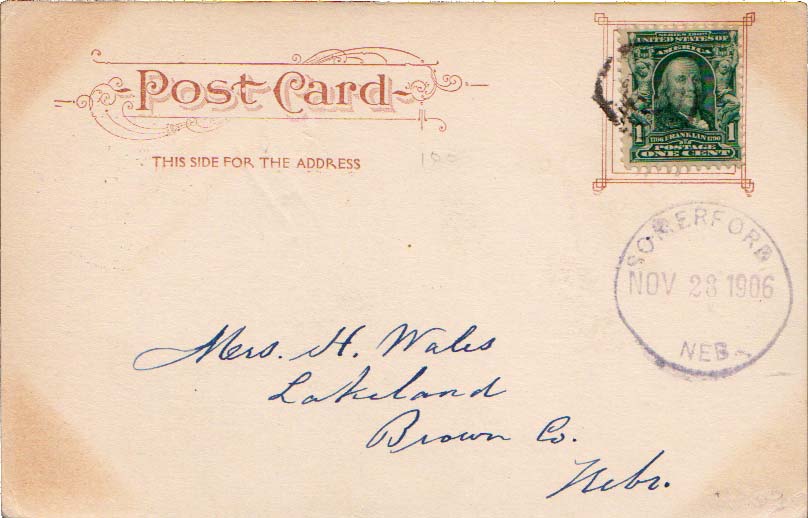 Post Card
THIS SIDE FOR THE ADDRESS
100
SERIES 1902
UNITED STATES OF
AMERICA
1706 FRANKLIN 1790
1 POSTAGE 1
ONE CENT
SOMERFORD
NOV 28 1906
NEB
Mrs. H. Wales
Lakeland
Brown Co.
Nebr.